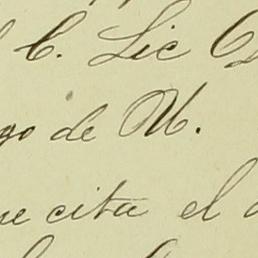 C. Lic
go de M.
se cita el